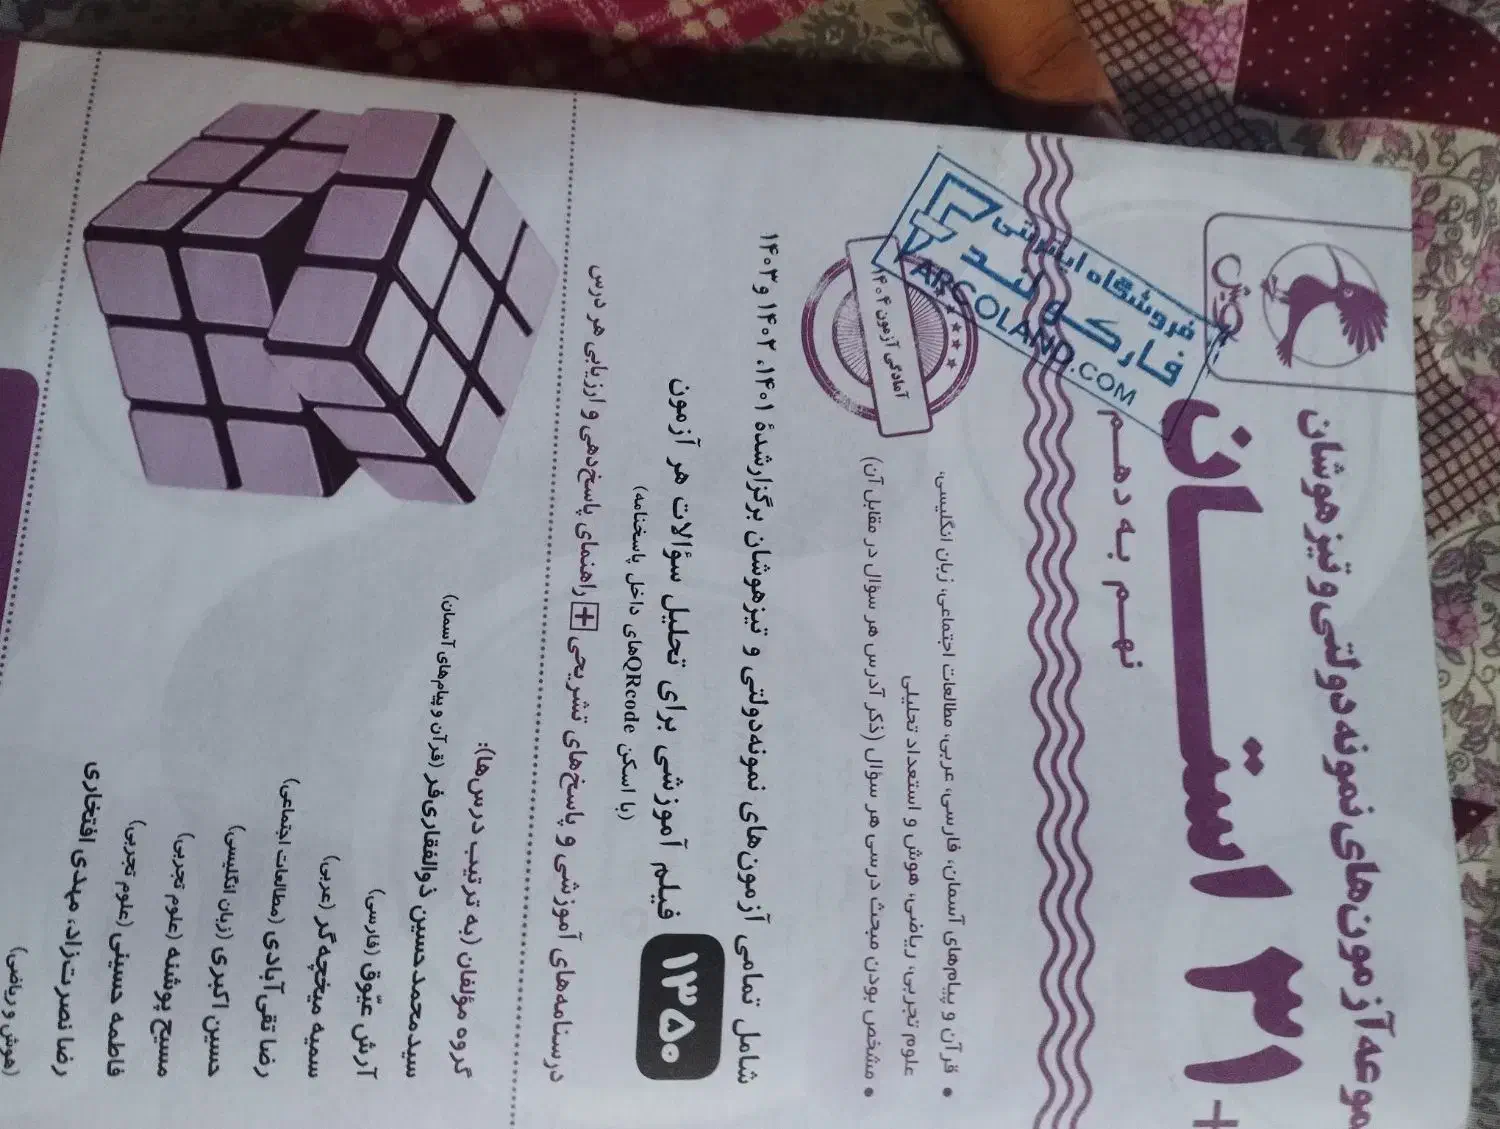 خویش
موعه آزمون‌های نمونه دولتی و تیزهوشان
+ ۳۱ استان
نهم به دهم
فروشگاه اینترنتی
فارگولند
FARGOLAND.COM
آمادگی آزمون ۱۴۰۴
• قرآن و پیام‌های آسمان، فارسی، عربی، مطالعات اجتماعی، زبان انگلیسی،
علوم تجربی، ریاضی، هوش و استعداد تحلیلی
• مشخص بودن مبحث درسی هر سؤال (ذکر آدرس هر سؤال در مقابل آن)
شامل تمامی آزمون‌های نمونه‌دولتی و تیزهوشان برگزارشدهٔ ۱۴۰۱، ۱۴۰۲ و ۱۴۰۳
۱۳۵۰ فیلم آموزشی برای تحلیل سؤالات هر آزمون
(با اسکن QRcodeهای داخل پاسخنامه)
درسنامه‌های آموزشی و پاسخ‌های تشریحی + راهنمای پاسخ‌دهی و ارزیابی هر درس
گروه مؤلفان (به ترتیب درس‌ها):
سیدمحمدحسین ذوالفقاری‌فر (قرآن و پیام‌های آسمان)
آرش عیّوق (فارسی)
سمیه میخچه‌گر (عربی)
رضا تقی‌آبادی (مطالعات اجتماعی)
حسین اکبری (زبان انگلیسی)
مسیح پوشنه (علوم تجربی)
فاطمه حسینی (علوم تجربی)
رضا نصرت‌زاد، مهدی افتخاری
(هوش و ریاضی)